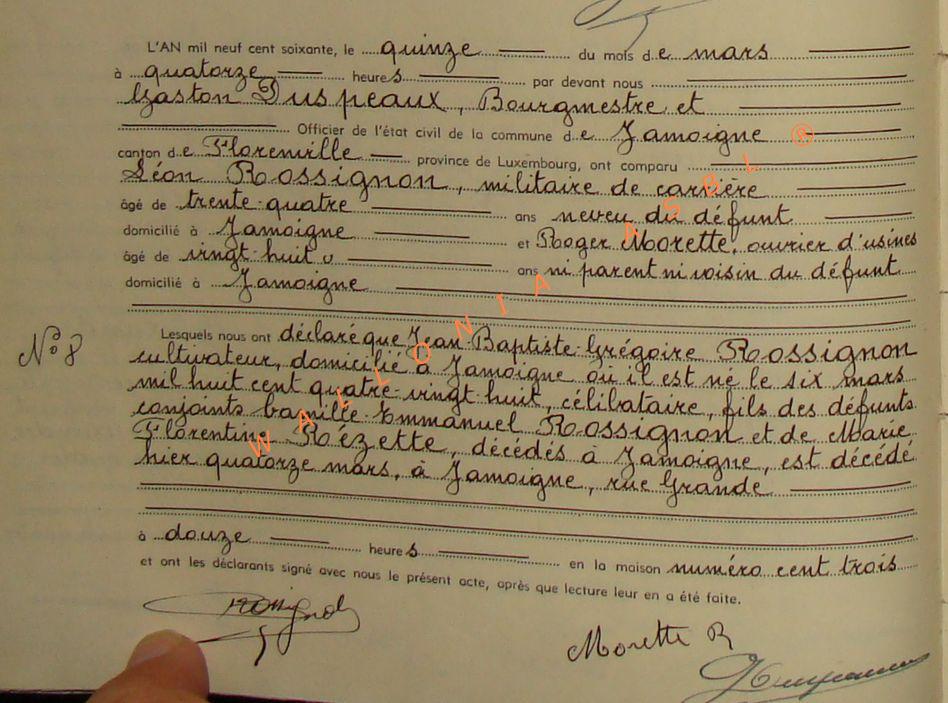 L'AN mil neuf cent soixante, le quinze du mois de mars
à quatorze heures par devant nous
Gaston Puspeaux, Bourgmestre et
Officier de l'état civil de la commune de Jamoigne ®
canton de Florenville province de Luxembourg, ont comparu
Léon Rossignon, militaire de carrière
âgé de trente-quatre ans neveu du défunt
domicilié à Jamoigne et Roger Morette, ouvrier d'usines
âgé de vingt-huit ans ni parent ni voisin du défunt
domicilié à Jamoigne
WALLONIA ASBL
N° 8
Lesquels nous ont déclaré que Jean-Baptiste-Grégoire Rossignon
cultivateur, domicilié à Jamoigne où il est né le six mars
mil huit cent quatre-vingt-huit, célibataire, fils des défunts
conjoints Camille-Emmanuel Rossignon et de Marie
Florentine Rézette, décédés à Jamoigne, est décédé
hier quatorze mars, à Jamoigne, rue Grande
à douze heures en la maison numéro cent trois
et ont les déclarants signé avec nous le présent acte, après que lecture leur en a été faite.
Rossignol
Morette R